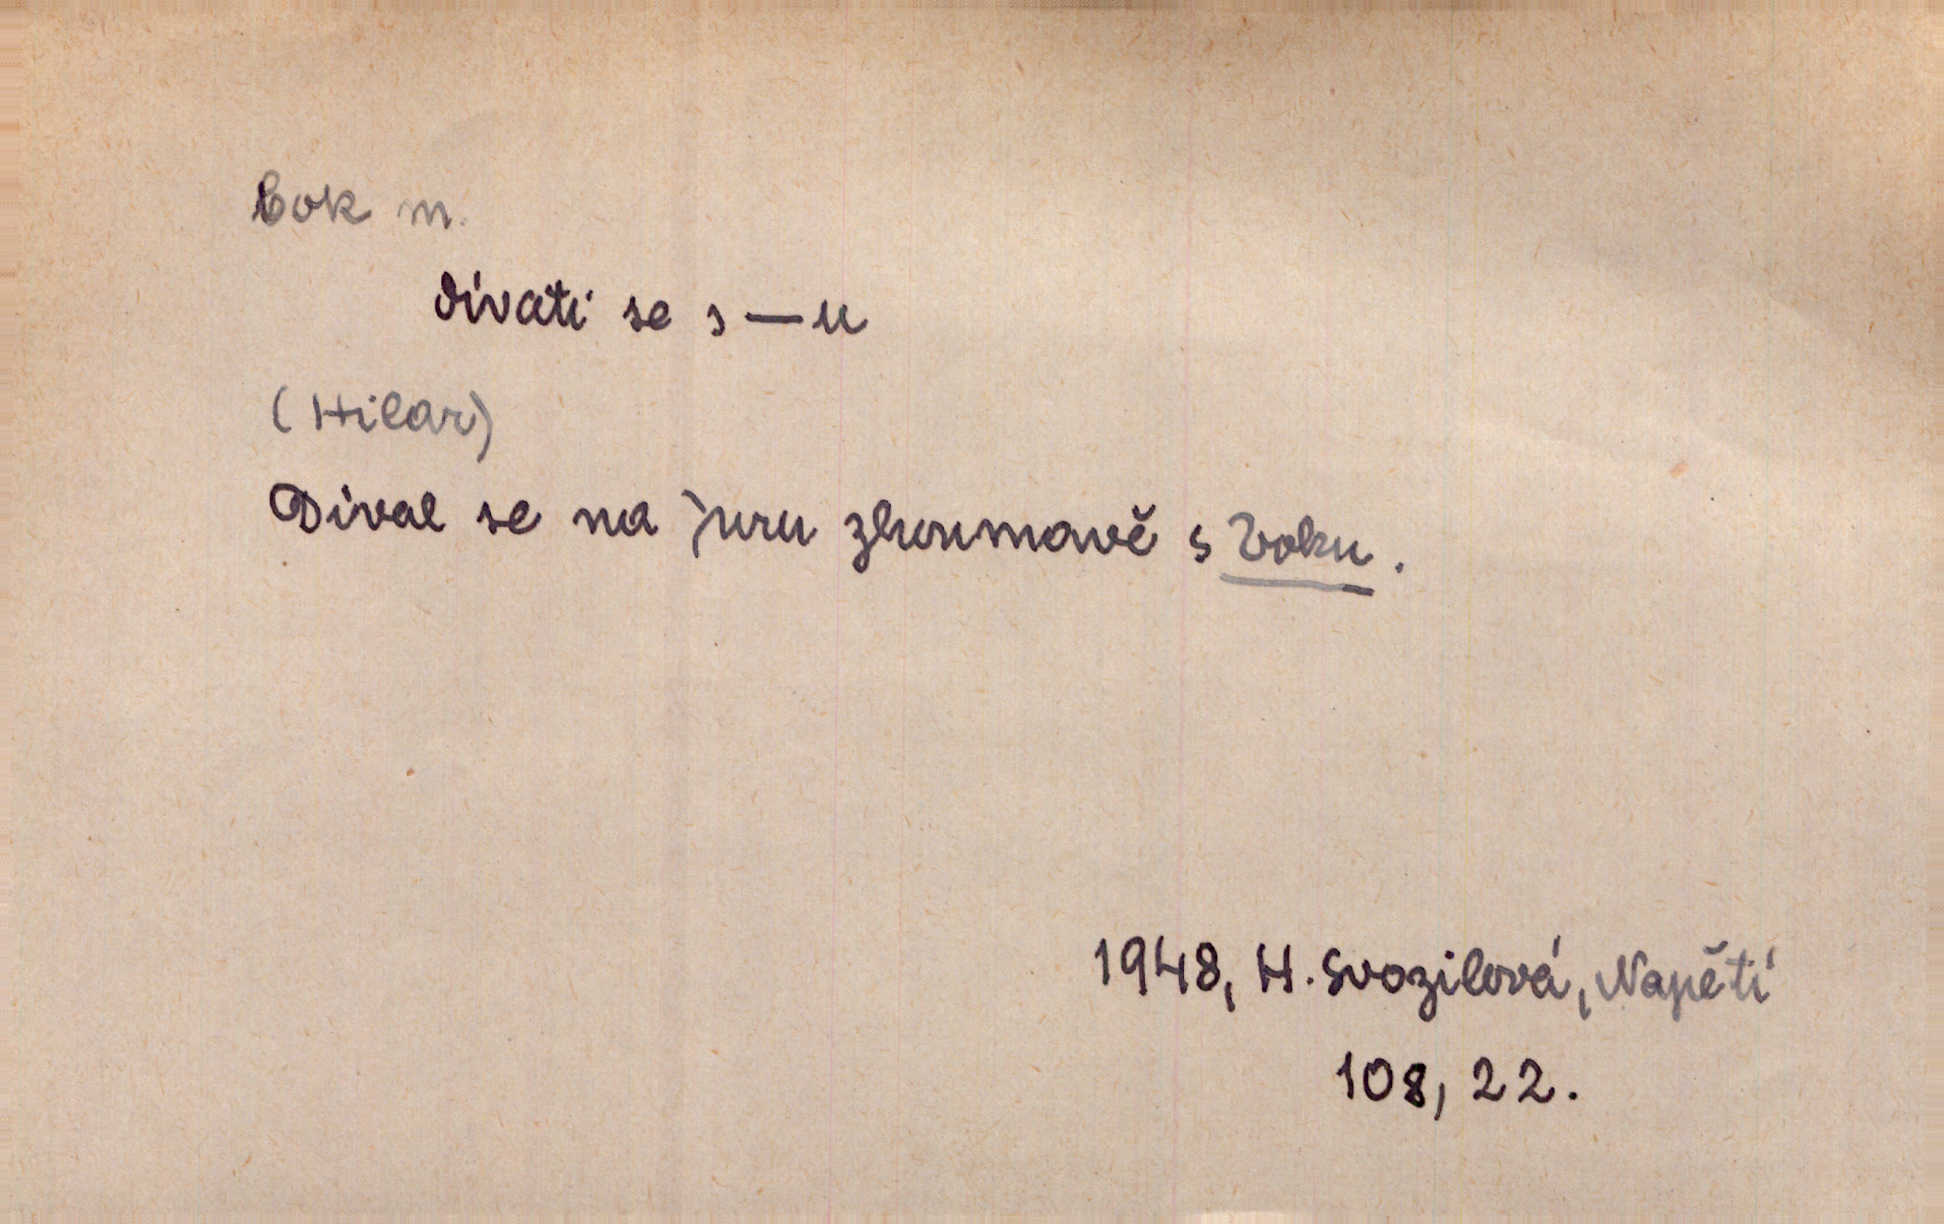 bok m.
dívati se s — u
(Hilar)
Díval se na Juru zkoumavě s boku.
1948, H. Svozilová, Napětí
108, 22.